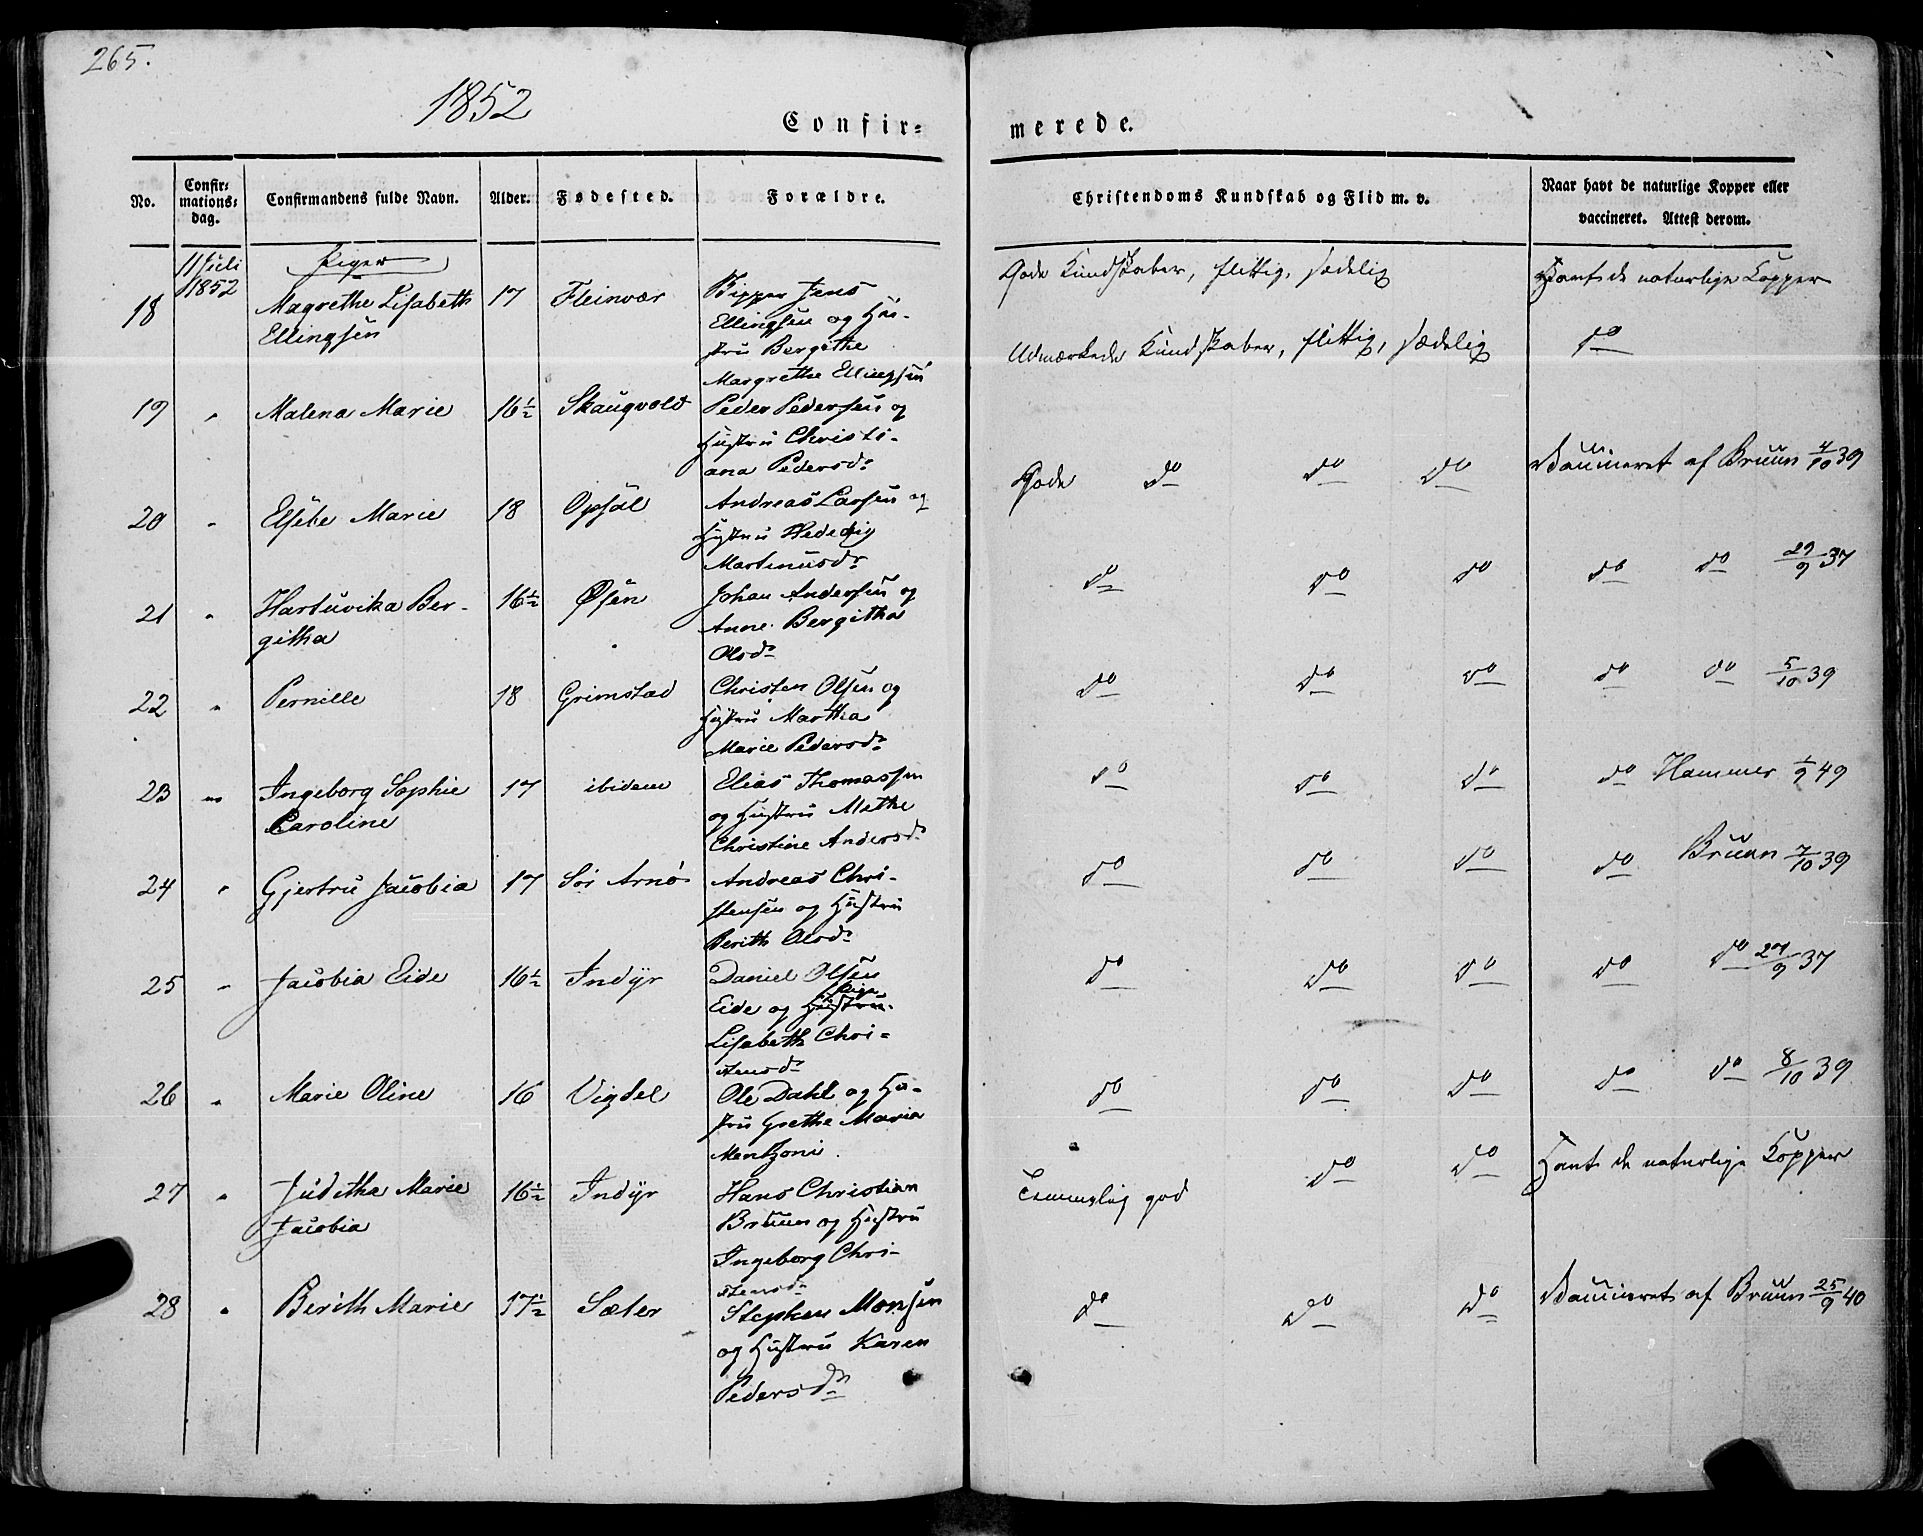 265.
1852
Confir=
merede.
No.
Confir=
mations=
dag.
Confirmandens fulde Navn.
Alder.
Fødested.
Forældre.
Christendoms Kundskab og Flid m. v.
Naar havt de naturlige Kopper eller
vaccineret. Attest derom.
11 Juli
1852
Piger
18 Magrethe Lisabeth 17 Fleinvær
Ellingsen
Jens
Ellingsen og Hu-
stru Bergithe
Margrethe Ellingsen
Gode Kundskaber, flittig, sædelig
Havt de naturlige Kopper
19 " Malena Marie 16½ Skaugvold Peder Pedersen og
Hustru Christi-
ana Pedersdr
Udmærkede Kundskaber, flittig, sædelig do
20 " Elsebe Marie 18 Opsal Andreas Larsen og
Hustru Hedevig
Martinusdr
Gode do do do Vaccineret af Bruun 4/10 39
21 " Hartuvika Ber- 16½ Øsen Johan Andersen og
githa
Anne Bergitha
Olsdr
do do do do do 29/9 37
22 " Pernille 18 Grimstad Christen Olsen og
Hustru Martha
Marie Pedersdr
do do do do do 5/10 39
23 " Ingeborg Sophie 17 ibidem Elias Thomassen
Caroline
og Hustru Methe
Christine Andersdr
do do do do Hammer 1/9 49
24 " Gjertru Jacobia 17 Sør Arnø Andreas Chri-
stensen og Hustru
Berith Olsdr
do do do do Bruun 7/10 39
25 " Jacobia Eide 16½ Indyr Daniel Olsen
Eide og Hustru
Pige
Lisabeth Chri-
stensdr
do do do do do 27/9 37
26 " Marie Oline 16 Vigdel Ole Dahl og Hu-
stru Grethe Maria
Mentzoni.
do do do do do 8/10 39
27 " Juditha Marie 16½ Indyr Hans Christian
Jacobia
Bruun og Hustru
Ingeborg Chri-
stensdr
Temmelig god do do Havt de naturlige Kopper
28 " Berith Marie 17½ Sæter Stephen Monsen
og Hustru Karen
Pedersdr
do do do Vaccineret af Bruun 25/9 40